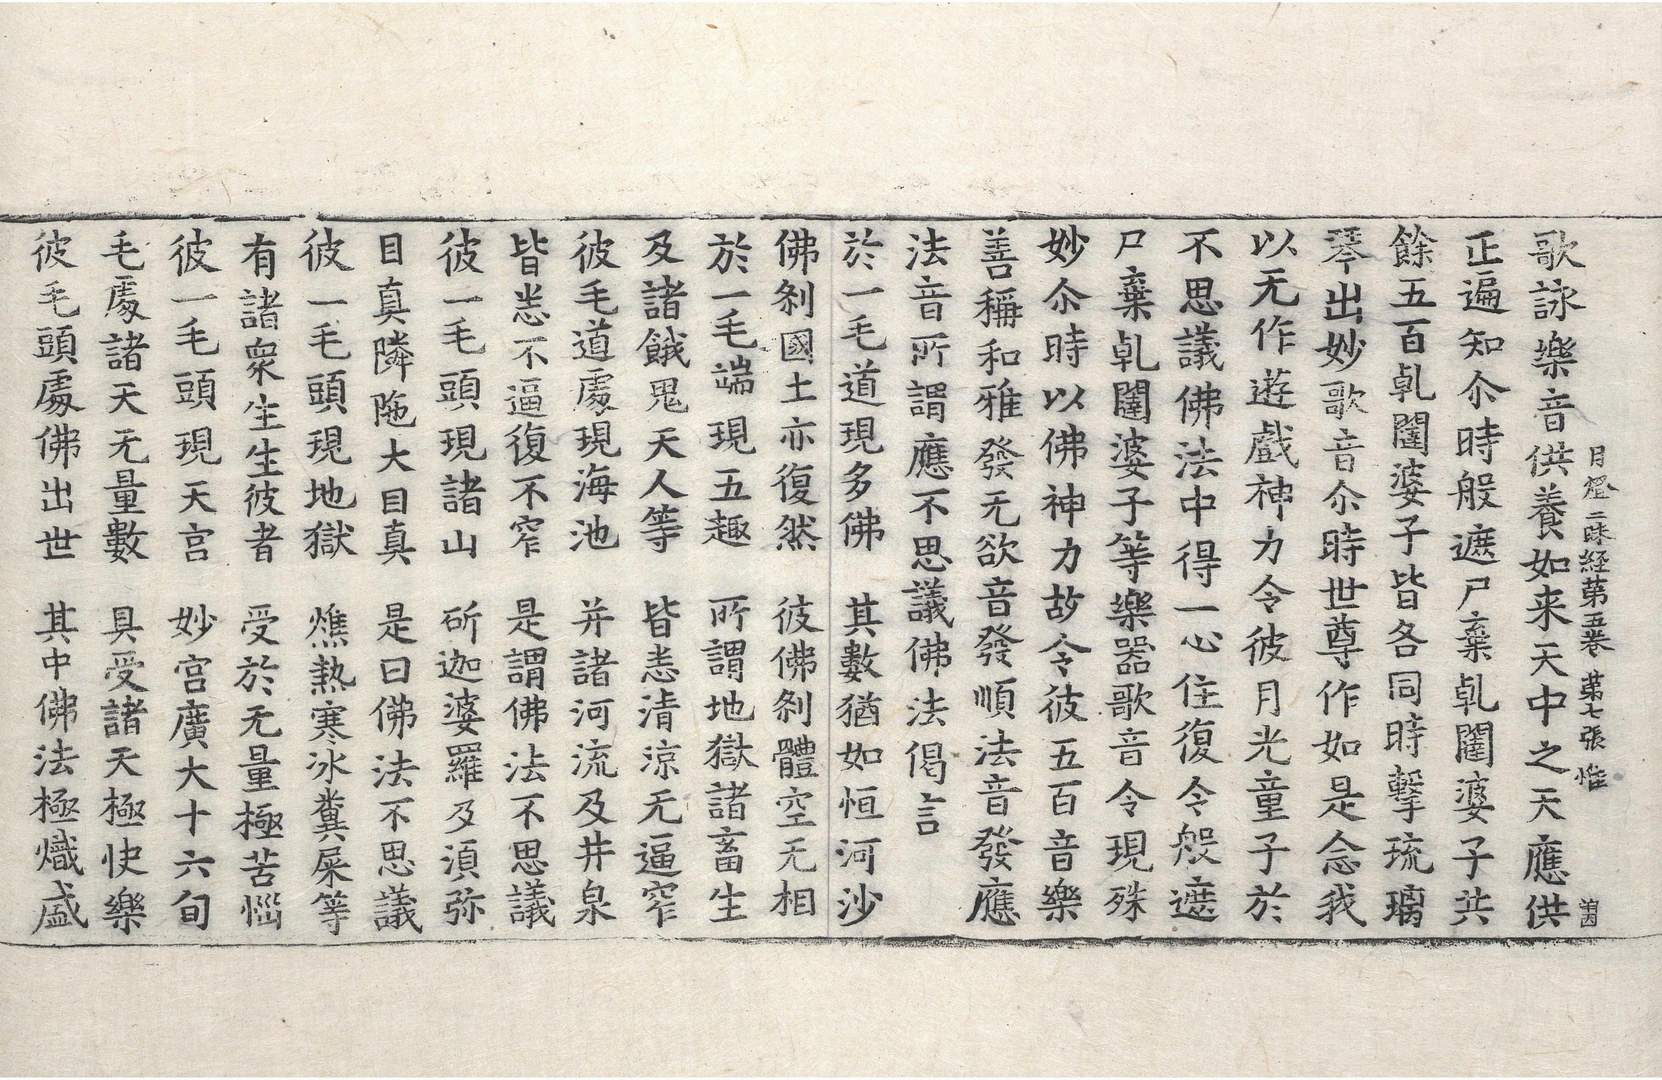 月燈三昧経第五卷 第七張 惟
歌詠樂音供養如来天中之天應供
正遍知尒時般遮尸棄乹闥婆子共
餘五百乹闥婆子皆各同時擊琉璃
琴出妙歌音尒時世尊作如是念我
以无作遊戲神力令彼月光童子於
不思議佛法中得一心住復令般遮
尸棄乹闥婆子等樂器歌音令現殊
妙尒時以佛神力故令彼五百音樂
善稱和雅發无欲音發順法音發應
法音所謂應不思議佛法偈言
於一毛道現多佛 其數猶如恒河沙
佛刹國土亦復然 彼佛刹體空无相
於一毛端現五趣 所謂地獄諸畜生
及諸餓鬼天人等 皆悉清涼无逼窄
彼毛道處現海池 并諸河流及井泉
皆悉不逼復不窄 是謂佛法不思議
彼一毛頭現諸山 斫迦婆羅及湏弥
目真隣陁大目真 是曰佛法不思議
彼一毛頭現地獄 燋熱寒冰糞屎等
有諸衆生生彼者 受於无量極苦惱
彼一毛頭現天宮 妙宮廣大十六旬
毛處諸天无量數 具受諸天極快樂
彼毛頭處佛出世 其中佛法極熾盛